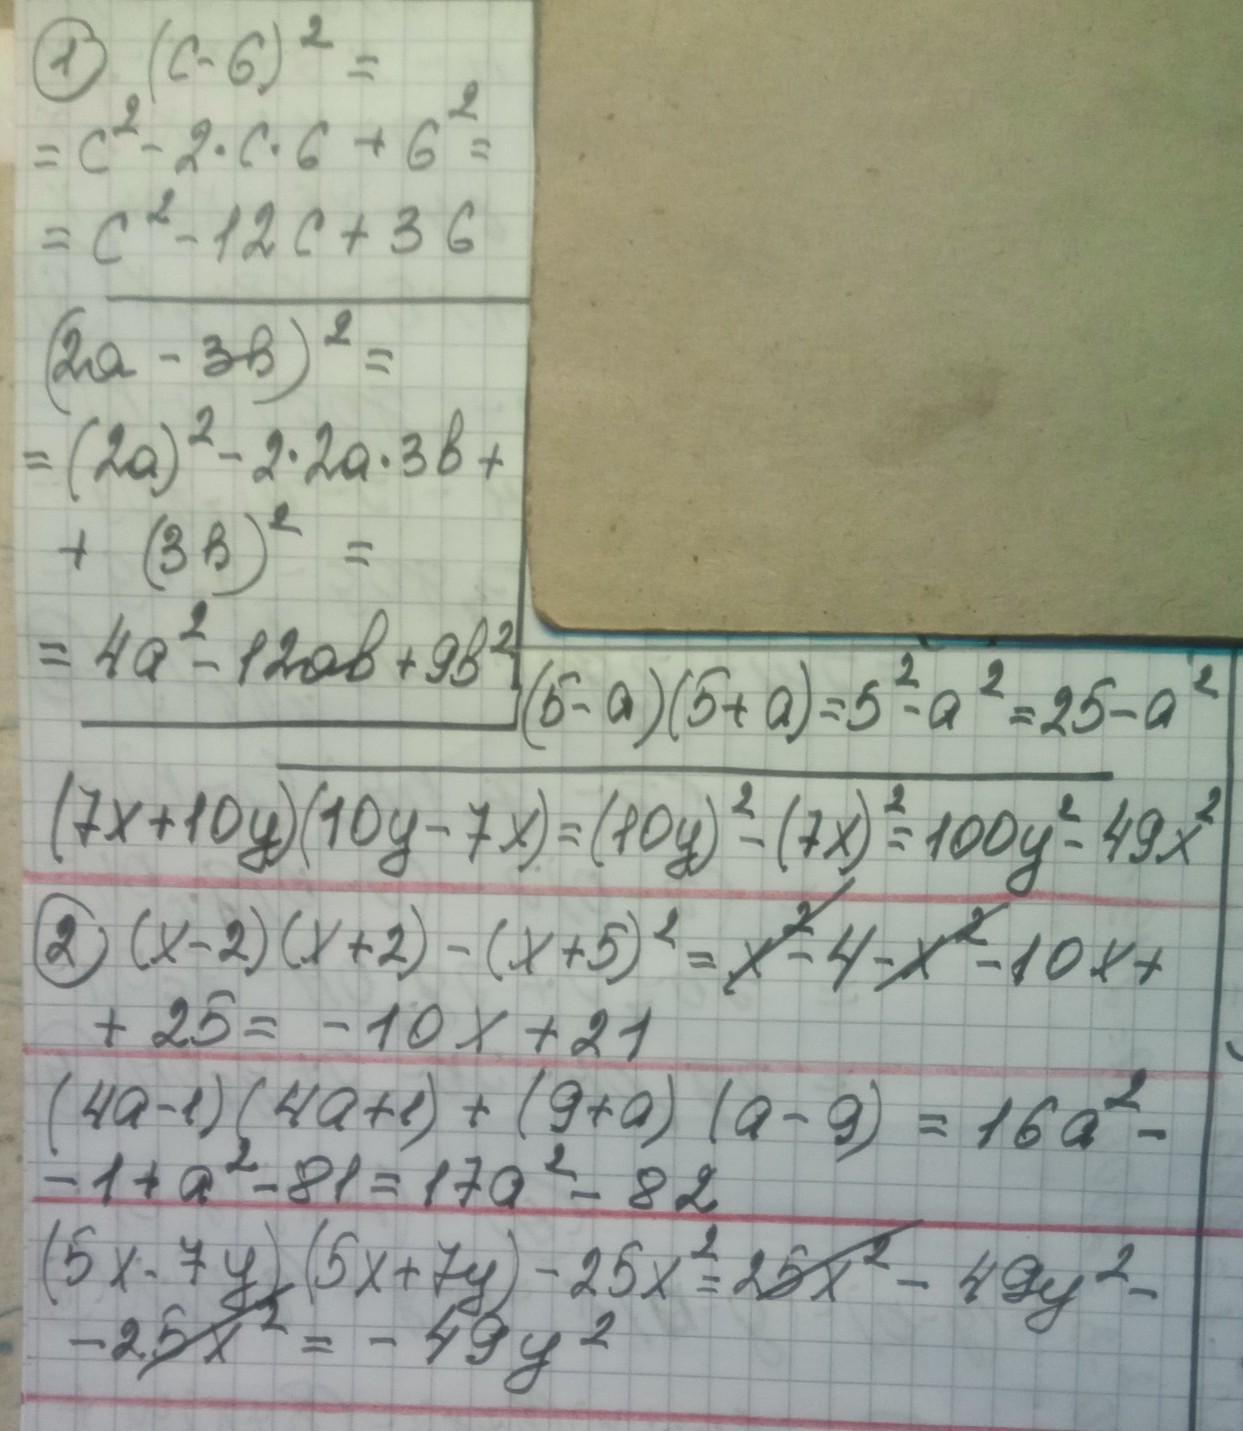 1) (c-6)² =
= c² - 2·c·6 + 6² =
= c² - 12c + 36
(2a - 3b)² =
= (2a)² - 2·2a·3b +
+ (3b)² =
= 4a² - 12ab + 9b²
(5-a)(5+a) = 5² - a² = 25 - a²
(7x+10y)(10y-7x) = (10y)² - (7x)² = 100y² - 49x²
2) (x-2)(x+2) - (x+5)² = x² - 4 - x² - 10x +
+ 25 = -10x + 21
(4a-1)(4a+1) + (9+a)(a-9) = 16a² -
- 1 + a² - 81 = 17a² - 82
(5x-7y)(5x+7y) - 25x² = 25x² - 49y² -
- 25x² = - 49y²